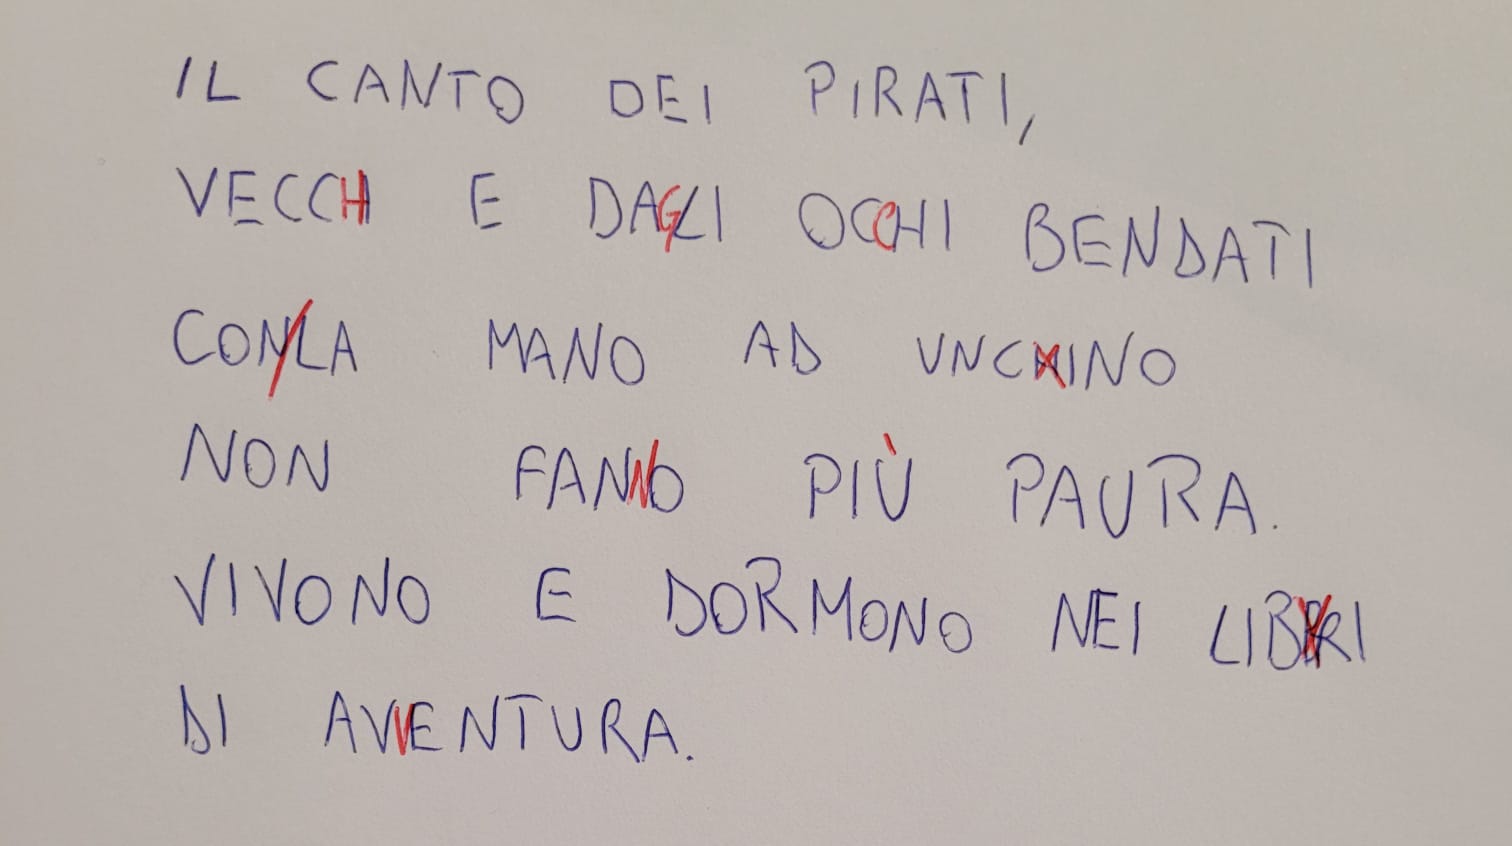 IL CANTO DEI PIRATI,
VECCHI E DAGLI OCCHI BENDATI
CON/LA MANO AD UNCINO
NON FANNO PIÙ PAURA.
VIVONO E DORMONO NEI LIBRI
DI AVVENTURA.